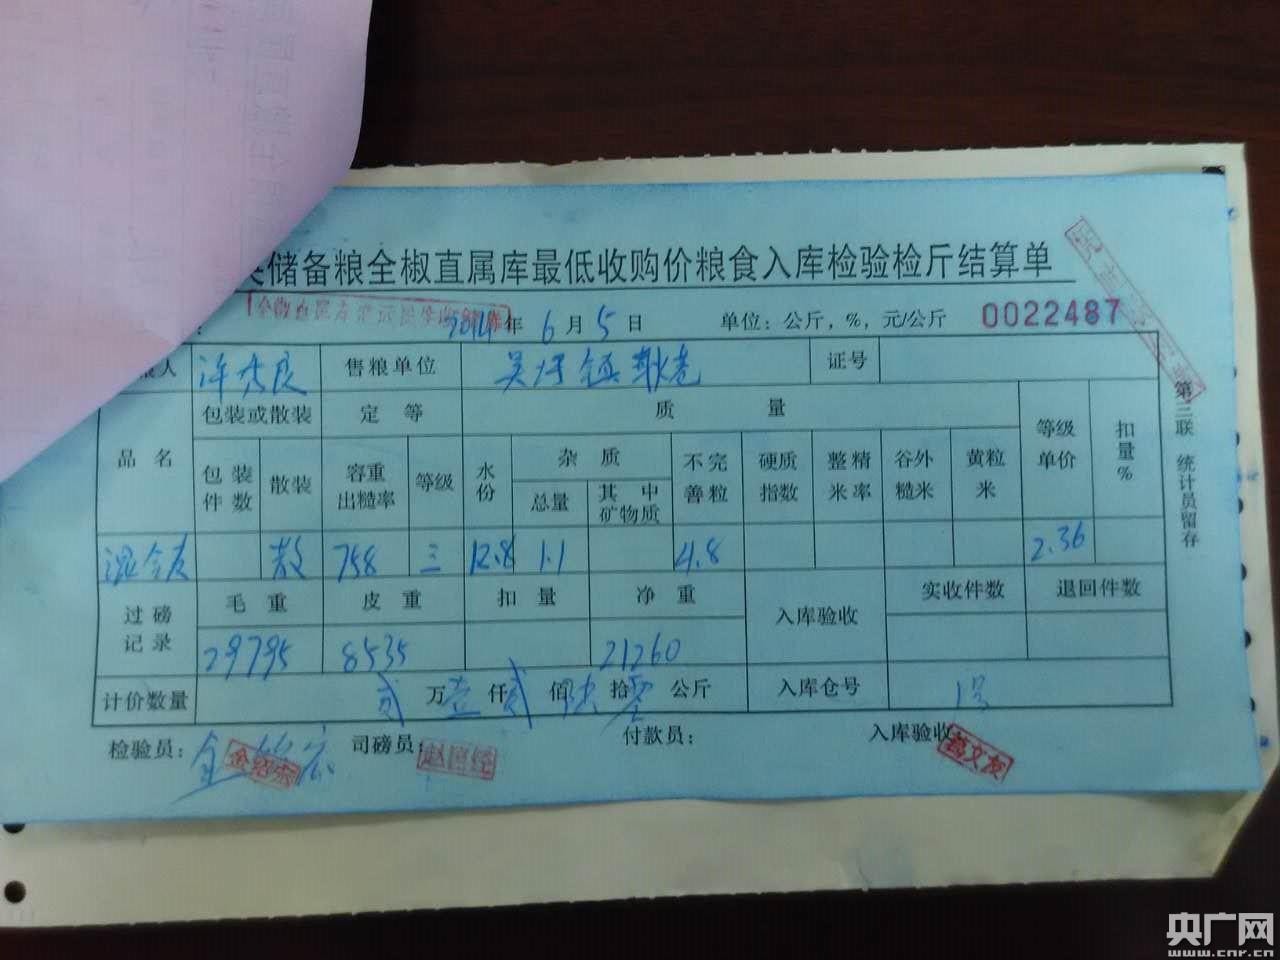 储备粮全椒直属库最低收购价粮食入库检验检斤结算单
2014年 6月 5日 单位：公斤，%，元/公斤 0022487
人 许 良 售粮单位 吴 镇 证号
品名 包装或散装 定等 质量 等级单价 扣量%
包装件数 散装 容重出糙率 等级 水份 杂质 不完善粒 硬质指数 整精米率 谷外糙米 黄粒米
总量 其中矿物质
混 散 758 三 12.8 1.1 4.8 2.36
过磅记录 毛重 皮重 扣量 净重 入库验收 实收件数 退回件数
29795 8535 21260
计价数量 贰万壹仟贰佰陆拾零公斤 入库仓号 1号
检验员： 金绍宏 司磅员： 付款员： 入库验收 葛文友
第三联 统计员留存
央广网
www.cnr.cn